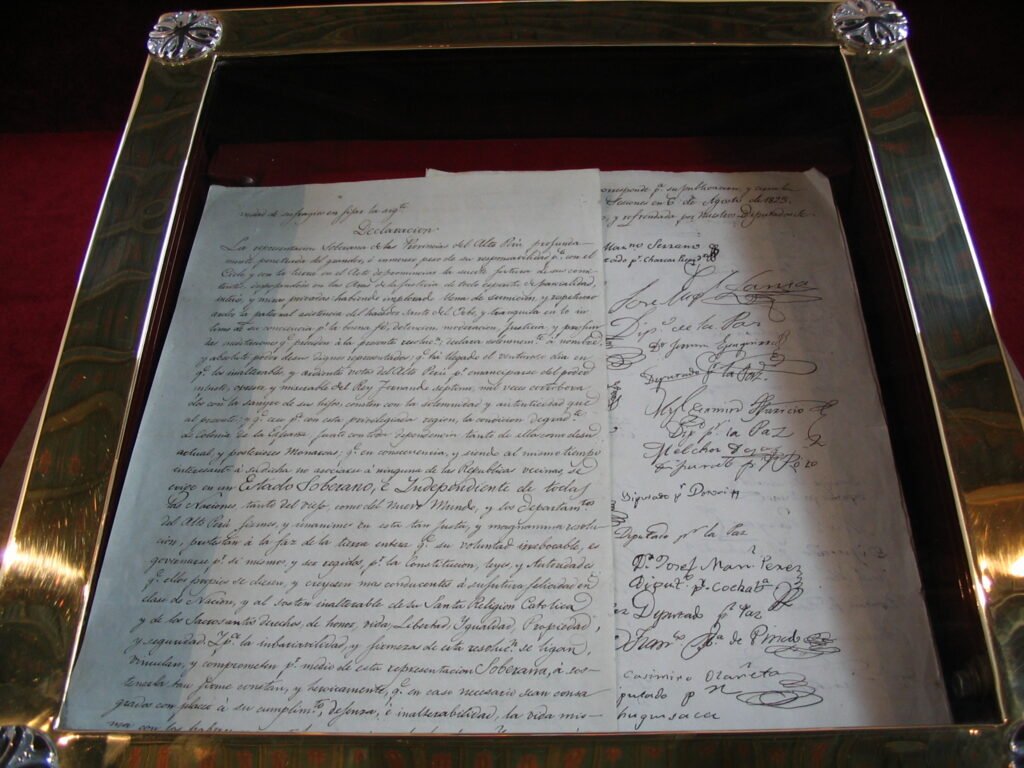 midad de sufragios en fijar la sigte.
Declaracion.
La representacion Soberana de las Provincias del Alto Perú profunda-
mente penetrada del grandor, é inmenso peso de su responsabilidad pa. con el
Cielo y con la tierra en el Acto de pronunciar la suerte futura de sus comi-
tentes, despojandose en las Aras de la Justicia de todo espiritu de parcialidad,
interes, y miras privadas habiendo implorado llena de sumision, y respetuoso
la paternal asistencia del hacedor Santo del Orbe, y tranquila en lo in-
timo de su conciencia pr. la buena fé, detencion, moderacion, Justicia, y profun-
das meditaciones qe. presiden á la presente resolun. declara solemnemte. á nombre
y absoluto poder de sus dignos representados: qe. há llegado el venturoso dia en
qe. los inalterables, y ardientes votos del Alto Perú pr. emanciparse del poder
injusto, opresor, y miserable del Rey Fernando septimo, mil veces corrobora-
dos con la sangre de sus hijos, consten con la solemnidad, y autenticidad que
al presente, y qe. cese pa. con esta privilegiada region, la condicion degradte.
de colonia de la España, junto con toda dependencia tanto de ella como de su
actual, y posteriores Monarcas; qe. en consecuencia, y siendo al mismo tiempo
interesante á su dicha no asociarse á ninguna de las Republicas vecinas se
erige en un Estado Soberano, é Independiente de todas
las Naciones, tanto del viejo, como del Nuevo Mundo, y los Departamtos.
del Alto Perú firmes, y unanimes en esta tan Justa, y magnanima resolu-
cion, protestan á la faz de la tierra entera qe. su voluntad irrebocable, es
gobernarse pr. si mismos, y ser regidos pr. la Constitucion, leyes, y Autoridades
qe. ellos propios se diesen, y creyesen mas conducentes á su futura felicidad en
clase de Nacion, y al sosten inalterable de su Santa Religion Catolica
y de los Sacrosantos derechos, de honor, vida, Libertad, Igualdad, Propiedad,
y seguridad. Y pa. la inbariavilidad, y firmeza de esta resolun. se ligan,
vinculan, y comprometen pr. medio de esta representacion Soberana, á sos-
tenerla tan firme, constan, y heroicamente, qe. en caso necesario sean consa-
grados con placer á su cumplimto, defensa, é inalterabilidad, la vida mis-
ma con los haberes
corresponde pa. su publicacion, y circula
Sesiones en 6 de Agosto de 1825
y refrendada por Nuestros Diputados
Marno Serrano
tado pr. Charcas
Jose Migl Lanza
Dipo. de la Paz
Diputado pr. la Paz
Dipo. pr. la Paz
Melchor
Diputado pr.
Diputado pr. Potosi
Diputado pr. la Paz
Dr. Josef Manl. Perez
Diputo. pr. Cochaba
Diputado pr. la Paz
Franco. Ma. de Pinedo
Casimiro Olañeta
putado pr.
huquisaca